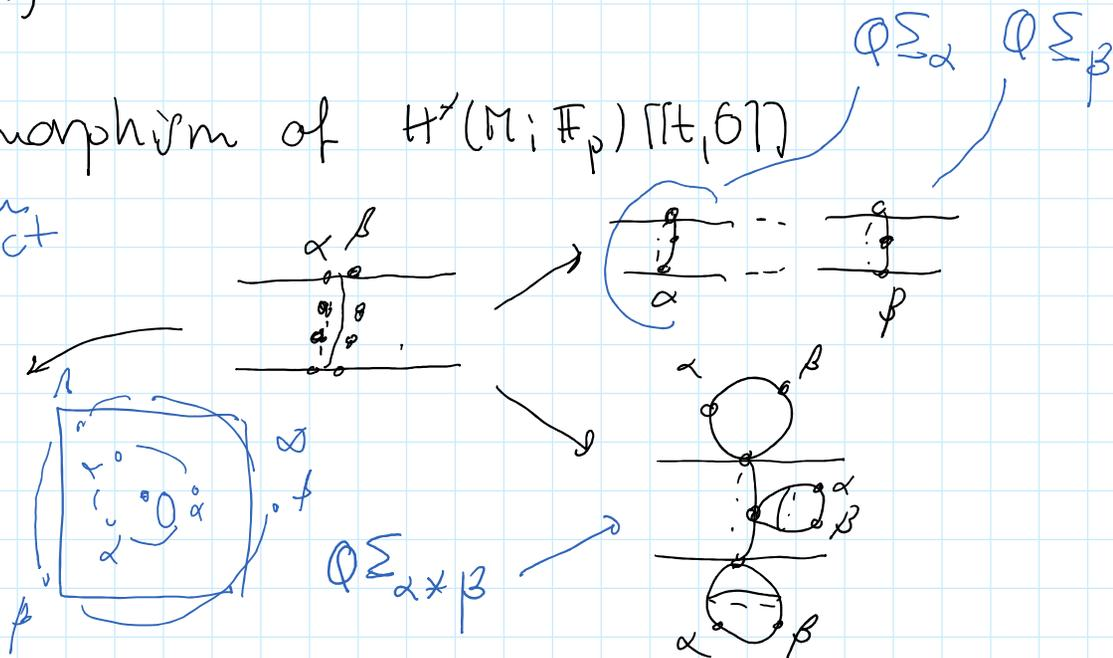 QΣ_α QΣ_β
morphism of H*(M; F_p) [[t,θ]]
ct
α β
α β
α β
α
β
∞
α
β
α
QΣ_{α*β}
β
α β